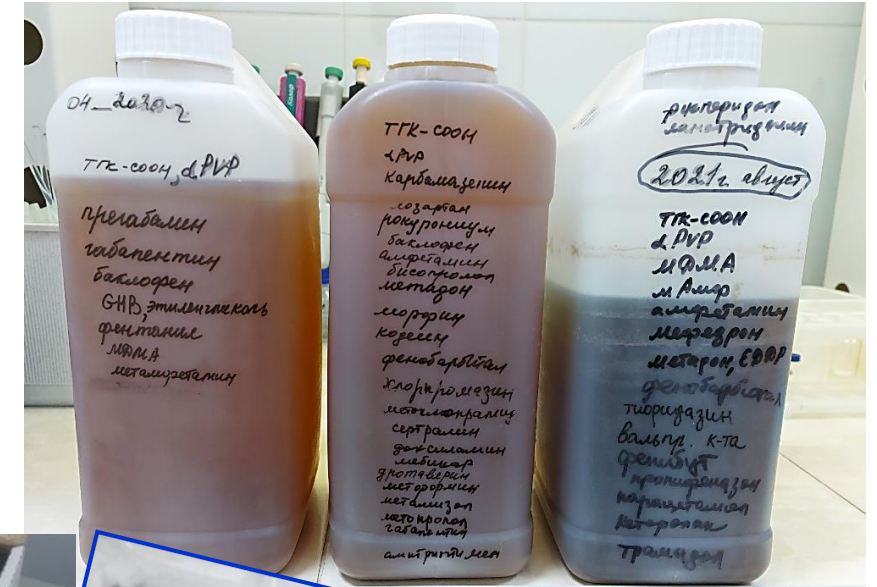 04_2020г
ТГК-COOH, αPVP
прегабалин
габапентин
баклофен
GHB, этиленгликоль
фентанил
МДМА
метамфетамин
ТГК-COOH
αPVP
карбамазепин
лозартан
рокурониум
баклофен
амфетамин
бисопролол
метадон
морфин
кодеин
фенобарбитал
хлорпромазин
сертралин
доксиламин
мебикар
дротаверин
метформин
метамизол
габапентин
рисперидон
2021г. август
ТГК-COOH
αPVP
МДМА
мАмф
амфетамин
мефедрон
метадон, EDDP
фенобарбитал
тиоридазин
вальпр. к-та
фенибут
пропифеназон
парацетамол
кеторолак
трамадол